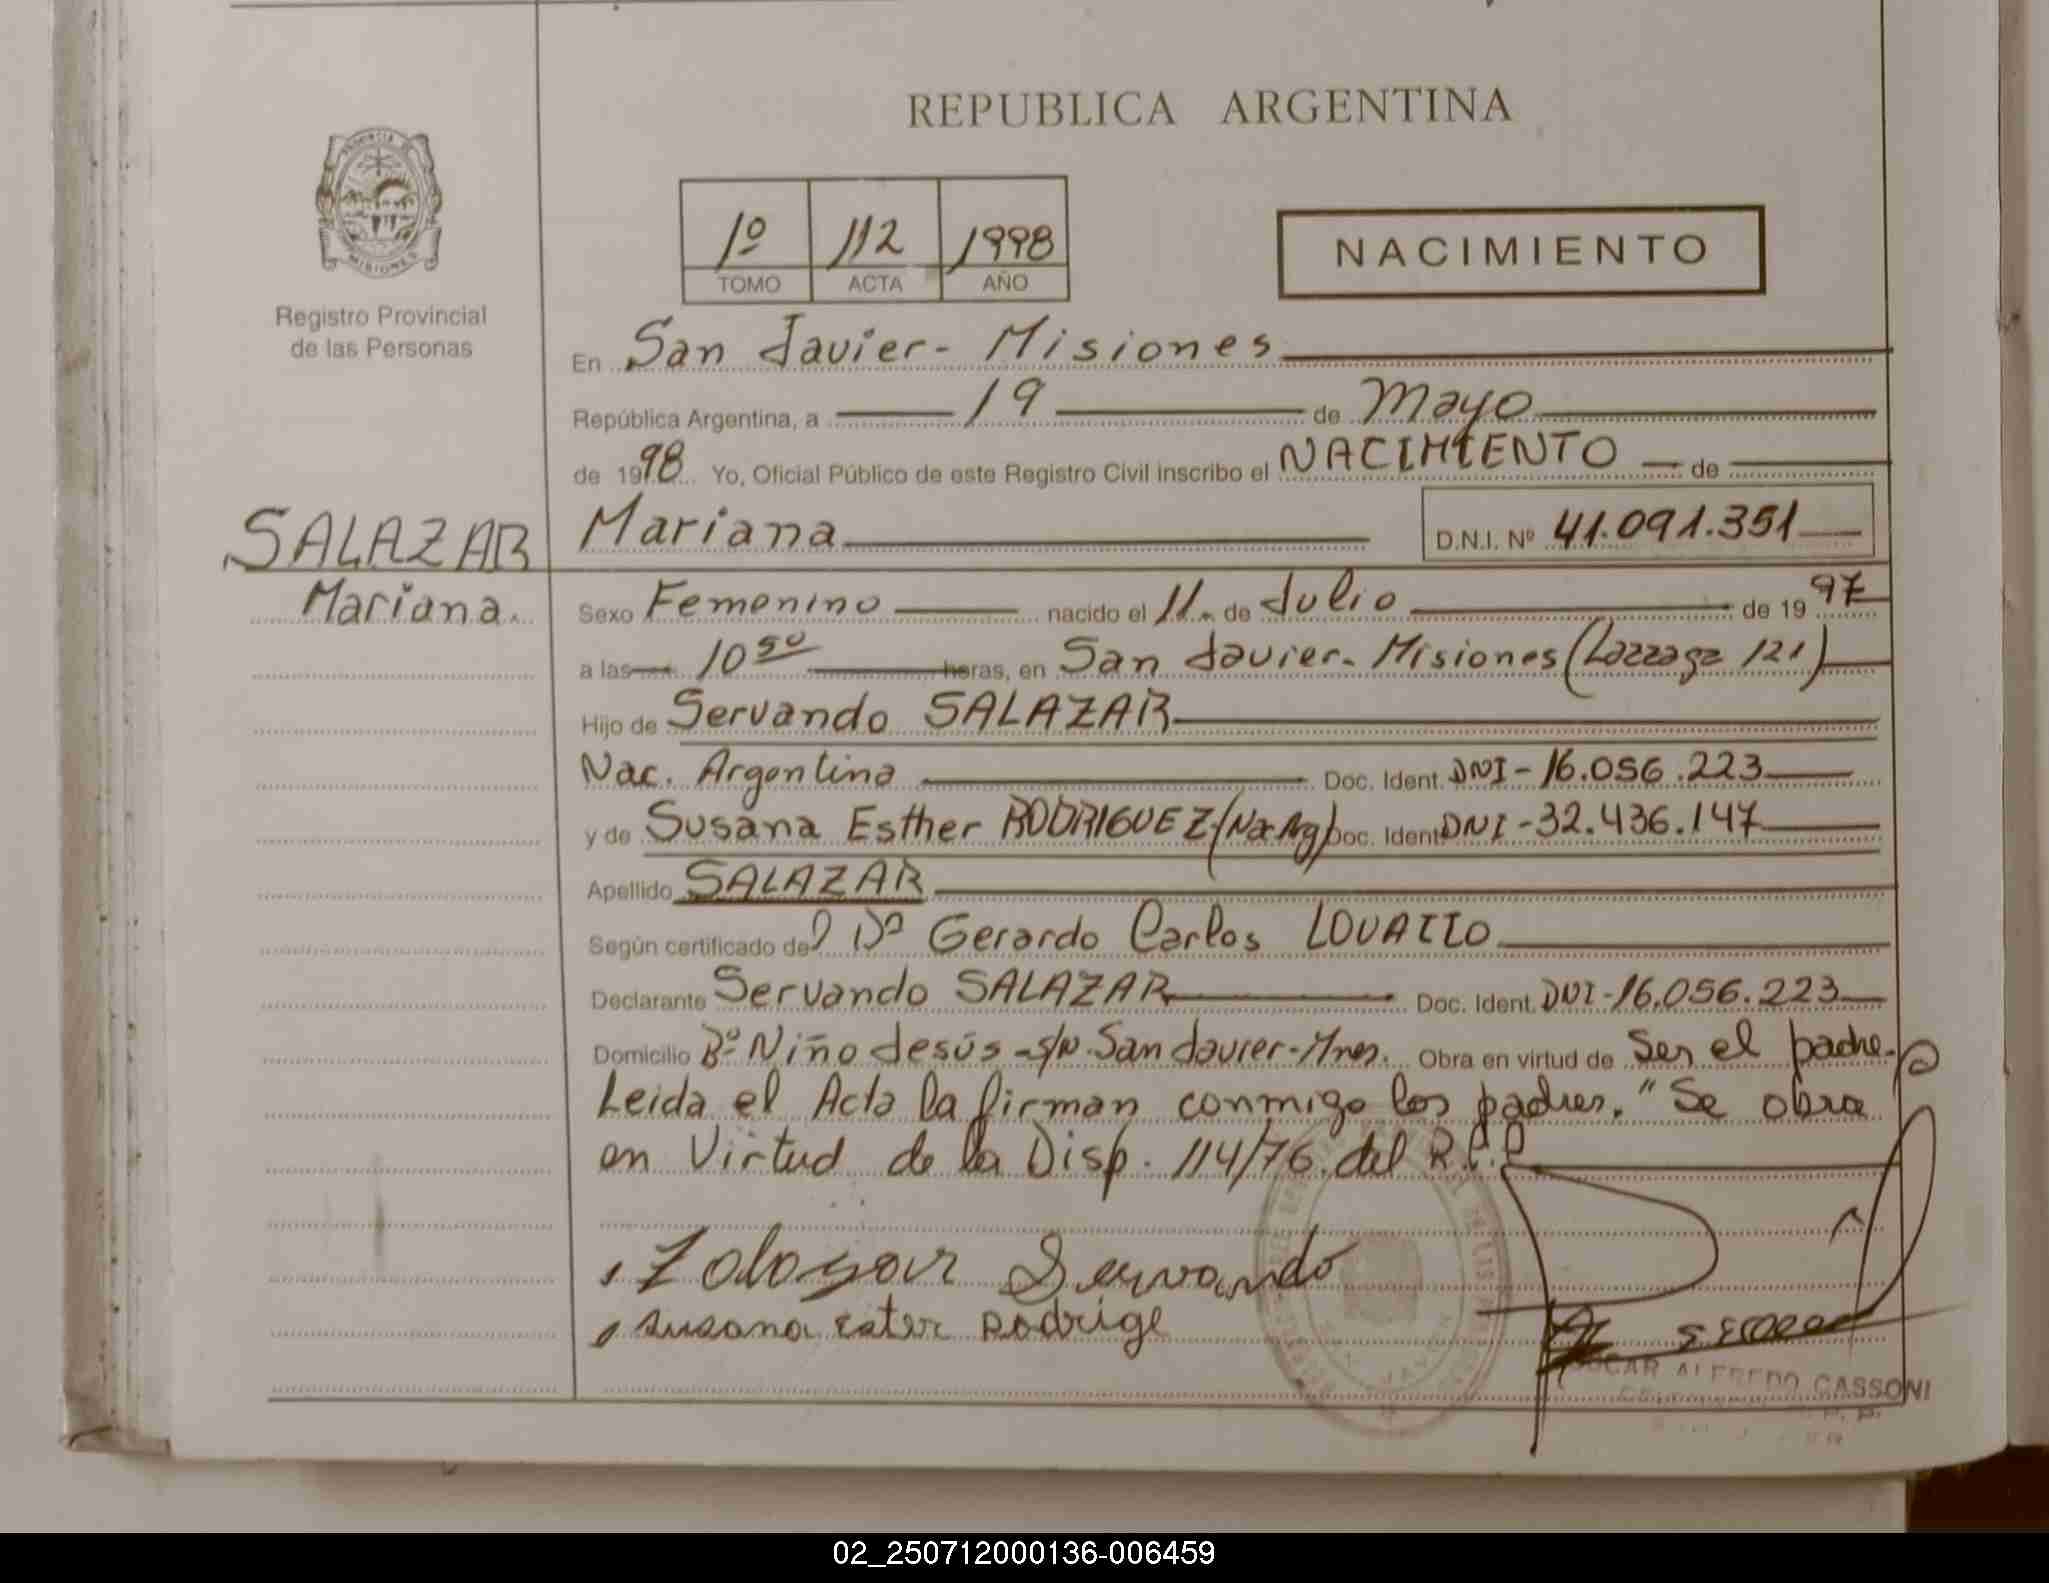 REPUBLICA ARGENTINA
PROVINCIA DE
MISIONES
Registro Provincial
de las Personas
1º 112 1998
TOMO ACTA AÑO
NACIMIENTO
En San Javier - Misiones
República Argentina, a 19 de Mayo
de 1998 Yo, Oficial Público de este Registro Civil inscribo el NACIMIENTO de
SALAZAR
Mariana.
Mariana D.N.I. Nº 41.091.351
Sexo Femenino nacido el 11. de Julio de 1997
a las 10 50 horas, en San Javier - Misiones (Lazzaga 121)
Hijo de Servando SALAZAR
Nac. Argentina Doc. Ident. DNI - 16.056.223
y de Susana Esther RODRIGUEZ (Nac Arg) Doc. Ident DNI - 32.436.147
Apellido SALAZAR
Según certificado de Dº Gerardo Carlos
Declarante Servando SALAZAR Doc. Ident. DNI - 16.056.223
Domicilio Bº Niño Jesús - s/n. San Javier - Mnes. Obra en virtud de Ser el padre.
Leida el Acta la firman conmigo los padres. "Se obra
en Virtud de la Disp. 114/76 del R.P.P
Zalasar Servando
susana ester Rodrige
OSCAR ALFREDO CASSONI
02_250712000136-006459